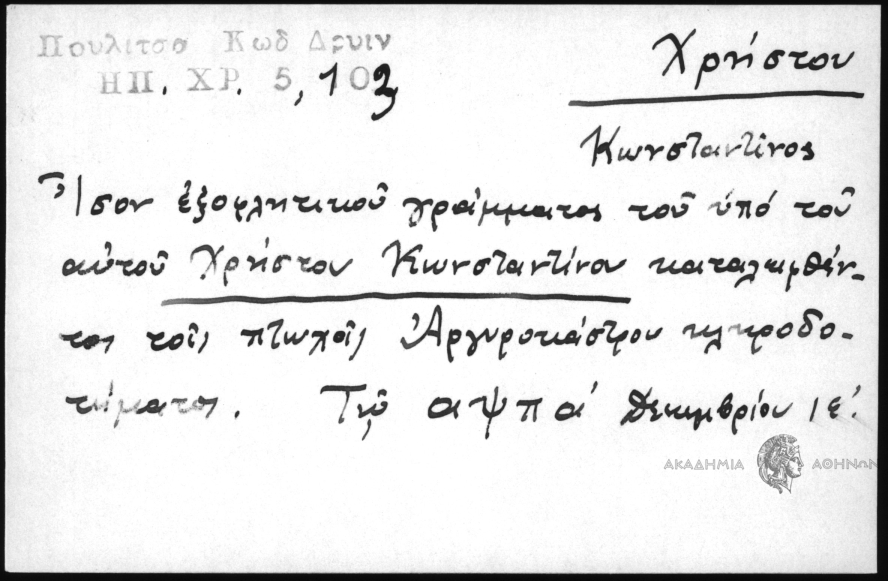 Πουλιτσα Κωδ Δρυιν
ΗΠ. ΧΡ. 5, 103
Χρήστου
Κωνσταντῖνος
Ἴσον ἐξοφλητικοῦ γράμματος τοῦ ὑπό τοῦ
αὐτοῦ Χρήστου Κωνσταντίνου καταλειφθέν-
τος τοῖς πτωχοῖς Ἀργυροκάστρου κληροδο-
τήματος. Τῷ αψπα' Δεκεμβρίου ιε'.
ΑΚΑΔΗΜΙΑ ΑΘΗΝΩΝ